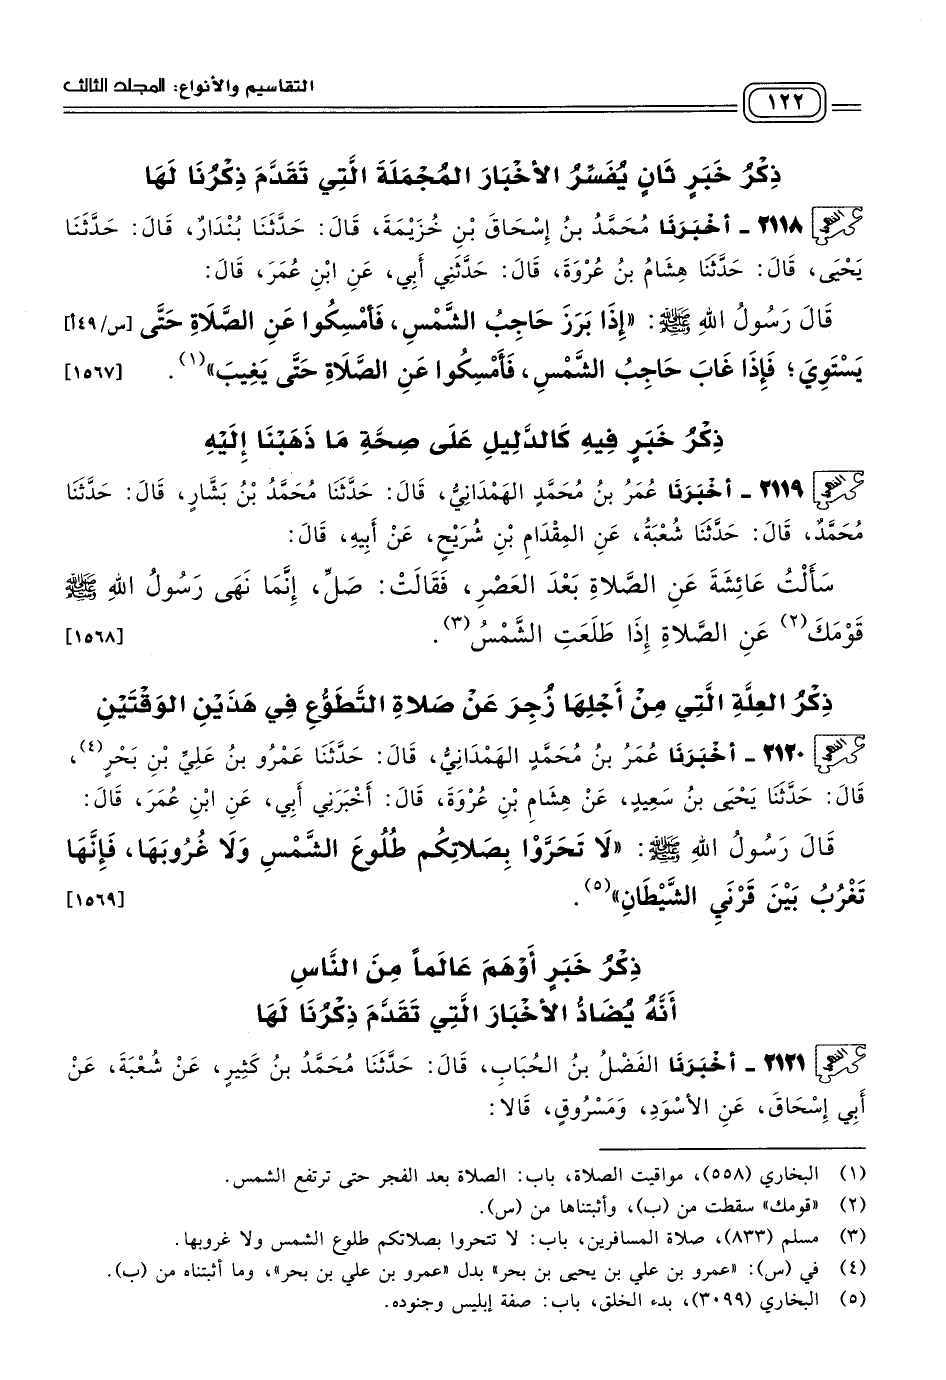 التقاسيم والأنواع: المجلد الثالث
١٢٢
ذِكْرُ خَبَرٍ ثَانٍ يُفَسِّرُ الأخْبَارَ المُجْمَلَةَ الَّتِي تَقَدَّمَ ذِكْرُنَا لَهَا
٢١١٨ - أخْبَرَنَا مُحَمَّدُ بنُ إسْحَاقَ بْنِ خُزَيْمَةَ، قَالَ: حَدَّثَنَا بُنْدَارٌ، قَالَ: حَدَّثَنَا
يَحْيَى، قَالَ: حَدَّثَنَا هِشَامُ بنُ عُرْوَةَ، قَالَ: حَدَّثَنِي أَبِي، عَنِ ابْنِ عُمَرَ، قَالَ:
قَالَ رَسُولُ اللهِ ﷺ: «إِذَا بَرَزَ حَاجِبُ الشَّمْسِ، فَأمْسِكُوا عَنِ الصَّلَاةِ حَتَّى [س/١٤٩أ]
يَسْتَوِيَ؛ فَإِذَا غَابَ حَاجِبُ الشَّمْسِ، فَأَمْسِكُوا عَنِ الصَّلَاةِ حَتَّى يَغِيبَ»(١). [١٥٦٧]
ذِكْرُ خَبَرٍ فِيهِ كَالدَّلِيلِ عَلَى صِحَّةِ مَا ذَهَبْنَا إِلَيْهِ
٢١١٩ - أخْبَرَنَا عُمَرُ بنُ مُحَمَّدٍ الهَمْدَانِيُّ، قَالَ: حَدَّثَنَا مُحَمَّدُ بْنُ بَشَّارٍ، قَالَ: حَدَّثَنَا
مُحَمَّدٌ، قَالَ: حَدَّثَنَا شُعْبَةُ، عَنِ المِقْدَامِ بْنِ شُرَيْحٍ، عَنْ أَبِيهِ، قَالَ:
سَأَلْتُ عَائِشَةَ عَنِ الصَّلَاةِ بَعْدَ العَصْرِ، فَقَالَتْ: صَلِّ، إِنَّمَا نَهَى رَسُولُ اللهِ ﷺ
قَوْمَكَ(٢) عَنِ الصَّلَاةِ إِذَا طَلَعَتِ الشَّمْسُ(٣). [١٥٦٨]
ذِكْرُ العِلَّةِ الَّتِي مِنْ أَجْلِهَا زُجِرَ عَنْ صَلاةِ التَّطَوُّعِ فِي هَذَيْنِ الوَقْتَيْنِ
٢١٢٠ - أخْبَرَنَا عُمَرُ بنُ مُحَمَّدٍ الهَمْدَانِيُّ، قَالَ: حَدَّثَنَا عَمْرُو بنُ عَلِيِّ بْنِ بَحْرٍ(٤)،
قَالَ: حَدَّثَنَا يَحْيَى بنُ سَعِيدٍ، عَنْ هِشَامِ بْنِ عُرْوَةَ، قَالَ: أَخْبَرَنِي أَبِي، عَنِ ابْنِ عُمَرَ، قَالَ:
قَالَ رَسُولُ اللهِ ﷺ: «لَا تَحَرَّوْا بِصَلاتِكُم طُلُوعَ الشَّمْسِ وَلَا غُرُوبَهَا، فَإِنَّهَا
تَغْرُبُ بَيْنَ قَرْنَيِ الشَّيْطَانِ»(٥). [١٥٦٩]
ذِكْرُ خَبَرٍ أَوْهَمَ عَالَماً مِنَ النَّاسِ
أَنَّهُ يُضَادُّ الأخْبَارَ الَّتِي تَقَدَّمَ ذِكْرُنَا لَهَا
٢١٢١ - أخْبَرَنَا الفَضْلُ بنُ الحُبَابِ، قَالَ: حَدَّثَنَا مُحَمَّدُ بنُ كَثِيرٍ، عَنْ شُعْبَةَ، عَنْ
أَبِي إسْحَاقَ، عَنِ الأسْوَدِ، وَمَسْرُوقٍ، قَالا:
(١) البخاري (٥٥٨)، مواقيت الصلاة، باب: الصلاة بعد الفجر حتى ترتفع الشمس.
(٢) «قومك» سقطت من (ب)، وأثبتناها من (س).
(٣) مسلم (٨٣٣)، صلاة المسافرين، باب: لا تتحروا بصلاتكم طلوع الشمس ولا غروبها.
(٤) في (س): «عمرو بن علي بن يحيى بن بحر» بدل «عمرو بن علي بن بحر»، وما أثبتناه من (ب).
(٥) البخاري (٣٠٩٩)، بدء الخلق، باب: صفة إبليس وجنوده.